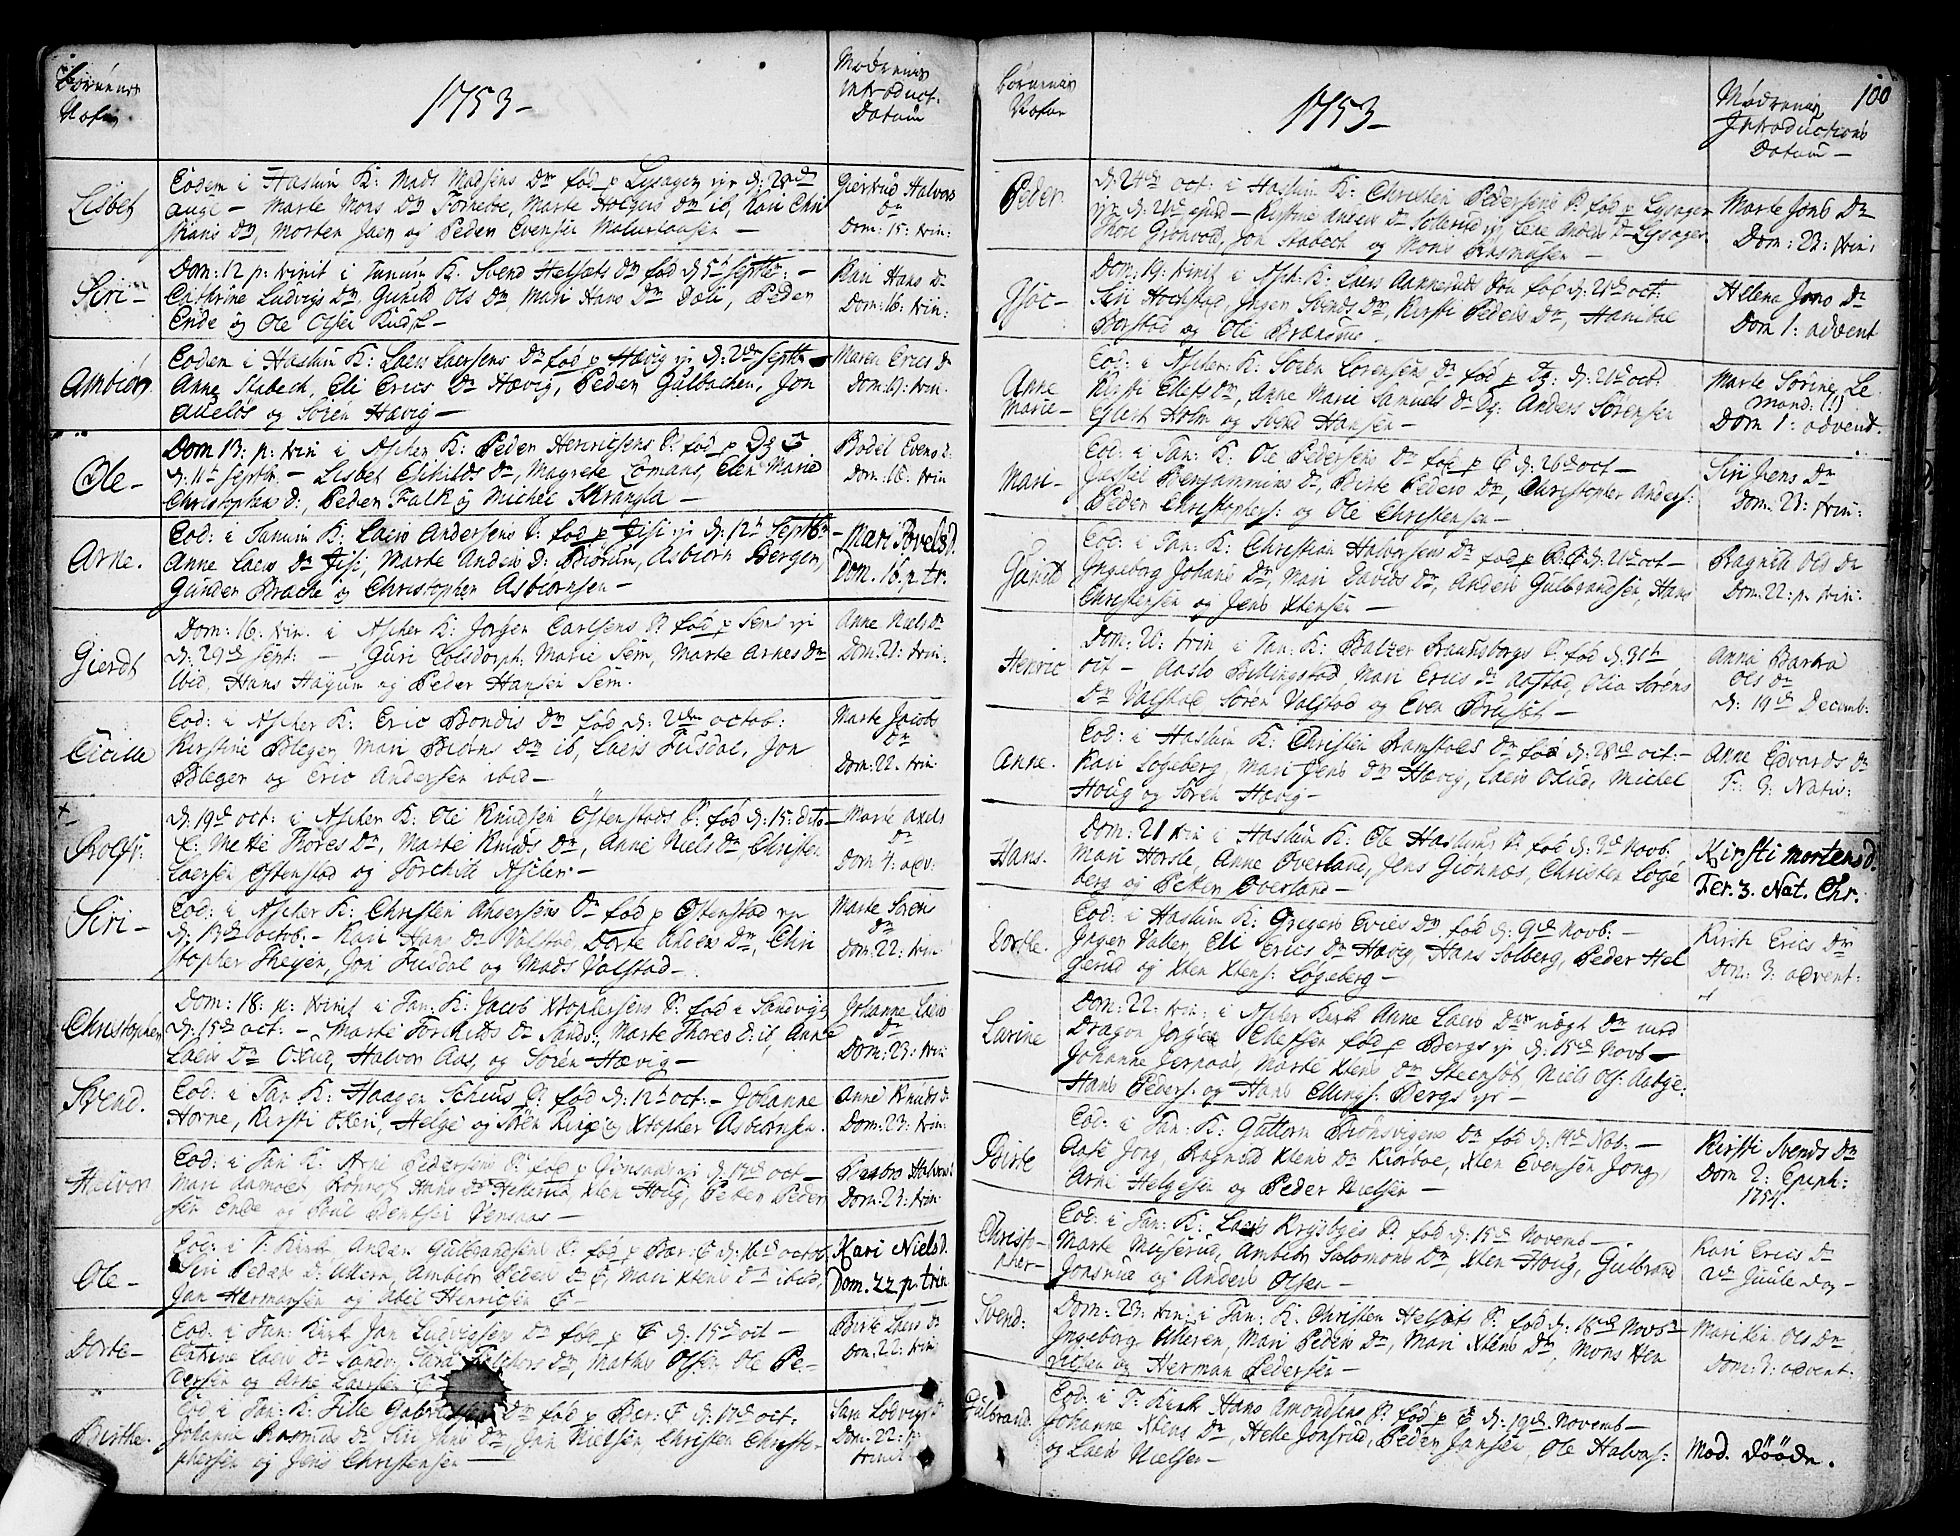 Børnenes
Nafn
1753 -
Mødrenis
Introduct:
Datum
Lisbet
Eodem i Haslum K: Mads Madsens Dr fød p Lysager
Aug - Marte Mons Dr Fornebo, Marte Holgers Dr ib, Kari Chri
stians Dr, Morten Jaer og Peder Evensen
Giertrud Halvors
Dr
Dom: 15: trin:
Siri -
Dom: 12 p: trinit i Tanum K: Svend Helsets Dr fød d: 5t Septbr: -
Cathrine Ludvigs Dr, Gunild Ols Dr, Mari Hans Dr Dæli, Peder
Ende og Ole Olsen
Kari Hans D
Dom: 16: trin:
Ambiør
Eodem i Haslum K: Laers Laersens Dr fød p Hævig d: 2de Septbr
Anne Stabech, Eli Erics Dr Hævig, Peder Gulbachen, Jon
og Søren Hævig -
Maren Erics D
Dom: 19: trin:
Ole -
Dom 13: p: trin i Asker K: Peder Henricsens S: fød p
d: 11t Septbr - Lisbet Eskilds Dr, Magrete Lomans, Elen Marie
Christophers D:, Peder Falk og Michel Skrangla -
Bodel Evens D:
Dom: 16: trin
Arne.
Eod: i Tanum K: Laers Andersens S: fød p d: 12t Septbr
Anne Laers Dr, Marte Anders D: Biorum, Asbiørn Bergen,
Gunder Brache og Christopher Asbiørnsen -
Mari Povels d.
Dom. 16. p. tr.
Gierdt
Dom: 16: trin. i Asker K: Jørgen Carlsens S: fød p Sem
d: 29de Sept: - Guri Tolsdorph, Marie Sem, Marte Arnes Dr
ibid, Hans Haygum og Peder Hansen Sem.
Anne Niels Dr
Dom: 21: trin:
Cicilla
Eod: i Asker K: Eric Bondis Dr fød d: 2de octob:
Kirstine Bleger, Mari Biørns Dr ib, Laers Fusdal, Jon
Bleger og Eric Andersen ibid -
Marte Jacobs
Dr
Dom: 22. trin.
d: 19de oct: i Asker K: Ole Knudsen Østenstads S: fød d: 15: dito -
Mette Thores Dr, Marte Knuds Dr, Anne Niels Dr Christen
Laersen Østenstad og Torchild Asker -
Marte Axels
Dr
Dom 4: adv:
Siri -
Eod: i Asker K: Christen Andersens Dr fød p Østenstad
d: 13de octob: - Kari Hans Dr Valstad, Dorte Anders Dr, Chri
stopher Theyen, Jon Fusdal og Mads Valstad -
Marte Sørens
Dr
Dom: 22: trin
Christopher
Dom: 18: p: trinit i Tan: K: Jacob Xtophersens S: fød i Sandvigen
d: 15de oct: - Marte Torchilds Dr Sandv:, Marte Thores D: ib, Anne
Laers Dr Oxud, Halvor Aas, og Søren Hævig -
Johanne Laers
Dr
Dom: 23: trin
Svend.
Eod: i Tan K: Haagen Schius S: fød d: 12t oct: - Johanne
Horne, Kirsti Okeri, Helge og Søren Ringe og Xtopher Asbiørnsen.
Anne Knuds D:
Dom: 23: trin:
Halvor
Eod: i Tan: K: Arne Pedersens S: fød p d: 17de oct -
Mari Hans Dr, Xten Houg, Peder Peder
sen Ende og Poul
Halvors
Dom: 23: trin:
Ole -
Eod: i T: Kirk Anders Gulbrandsens S: fød p Bær: d: 16de octob
Siri Peders D: Ullern, Ambiør Peders D: Mari Xtens Dr ibid,
Jan Hermansen og Abel Henricsen
Kari Niels d.
Dom. 22 p. trin
Dorte -
Eod: i Tan: Kirk Jan Ludvigsen Dr fød p d: 15de oct -
Catrine Laers Dr Sandv:, Sara Dr, Mathis Olsen, Ole Pe-
dersen og Arne Laersen
Birte Laers D
Dom: 22: trin
Birthe.
Eod i Tan: K: Fille Dr fød p Bær: d: 17de oct:
Johanne Rasmus Dr Siri Jans Dr, Jan Nielsen, Christen Christo-
phersen og Jens Christensen -
Sara Lodvigs Dr
Dom: 22: p:
trinit
Børnenes
Nafne
1753 -
Mødrenis
Introductions
Datum -
100
Peder
d: 24de oct: i Haslum K: Christen Pedersens S: fød p Lysager
d: 21de ejusd - Kirstine Anders Dr Sollerud, Lise Anders Dr Lysager
Thore Grønvold, Jon Stabech og Mons Rasmusen -
Marte Jons Dr
Dom: 23: trin:
Dom: 19: trinit i Asker K: Laers Aannerud Dr fød d: 21de oct:
Siri Hochstad, Inger Svends Dr, Kirsti Peders Dr, Hanibal
Borstad og Ole Brænsmo.
Helena Jons Dr
Dom 1: advent
Anne
Marie -
Eod: i Asker K: Sören Sørensens Dr fød p d: 21de oct:
Kirsti Elefs Dr, Anne Marie Samuels Dr, Anders Sörensen
Eylert Holm og Svend Hansen -
Marte Sørine Le
mand: (!)
Dom 1: advent.
Mari -
Eod: i Tan: K: Ole Pedersens Dr fød p d: 26de oct -
Benjamins Dr, Birte Peders Dr, Christopher Anders:
Peder Christophers: og Ole Christensen -
Siri Jens Dr
Dom: 23: trin:
Gunild
Eod: i Tan: K: Christian Halvorsens Dr fød p B: d: 21de oct -
Ingeborg Johans Dr, Mari Davids Dr, Anders Gulbrandsen, Hans
Christensen og Jens Xtensen -
Ragnild Ols Dr
Dom: 22: p: trin:
Henric
Dom: 20: trin i Tan: K: Balzer Brandsborgs S: fød d: 31te
oct - Aaslo Billingstad, Mari Erics Dr Aastad, Olia Sørens
Dr Valstad, Søren Valstad og Even Bruset -
Anna Barbra
Ols Dr
d: 19de Decemb:
Anne.
Eod: i Haslum K: Christen Ramstads Dr fød d: 28de oct: -
Kari Løgeberg, Mari Jens Dr Hævig, Laers Oxud, Michel
Houg og Søren Hævig -
Anne Edvards Dr
F: 3: Nativ:
Hans.
Dom: 21 trin i Haslum K: Ole Haslums S: fød d: 3de Novb:
Mari Horsle, Anne Overland, Jens Giønnes, Christen Løge
berg og Petter Overland -
Kirsti mortens d.
Fer. 3. Nat. Chr.
Dorthe.
Eod: i Haslum K: Gregers Erics Dr fød d: 9de Novb: -
Inger Valler, Eli Erics Dr Hævig, Hans Solberg, Peder Hel
gerud og Xten Xtens: Løgeberg -
Kirsti Erics Dr
Dom: 3: advent:
Larine
Dom: 22: trin: i Asker Kirk Anne Laers Dr uægt Dr med
Dragon Jørgen Ellefsen fød p Bergs d: 15de Novb -
Johanne Jernaas, Marte Xtens Dr Steenset, Niels Ols: Aabye.
Hans Peders: og Hans Ellings: Bergs -
Birte
Eod: i Tan: K: Guttorm Brønsvigens Dr fød d: 14de Nov: -
Aase Jong, Ragnild Xtens Dr Kiørboe, Xten Evensen Jong,
Arne Helgesen og Peder Nielsen -
Kirsti Svends Dr
Dom 2: Epiph:
1754.
Christo-
pher -
Eod: i Tan: K: Laers S: fød d: 15de Novemb -
Marte Muserud, Ambiør Salomons Dr, Xten Houg, Gulbrand
Jonsrud og Anders Olsen -
Kari Erics Dr
2de Juule Dag -
Svend:
Dom: 23: trin: i Tan: K: Christen Helsets S: fød d: 18de Novbr
Ingeborg Ulleren, Mari Peders Dr, Mari Xtens Dr, Mons Hen
ricsen og Herman Pedersen -
Mariken Ols Dr
Dom: 3: advent:
Gulbrand.
Eod: i T: Kirk Hans Amondsens S: fød p d: 19de Novemb -
Johanne Xtens Dr, Helle Jonsrud, Peder Jansen, Ole Halvors:
og Laers Nielsen -
Mod. Døøde.